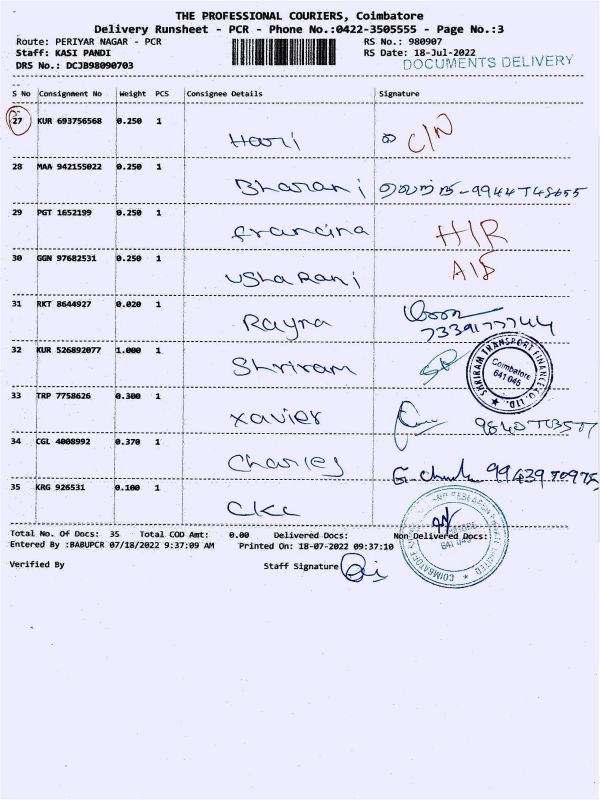 THE PROFESSIONAL COURIERS, Coimbatore
Delivery Runsheet - PCR - Phone No.:0422-3505555 - Page No.:3
Route: PERIYAR NAGAR - PCR
RS No.: 980907
Staff: KASI PANDI
RS Date: 18-Jul-2022
DRS No.: DCJB98090703
DOCUMENTS DELIVERY
S No Consignment No Weight PCS Consignee Details Signature
27 KUR 693756568 0.250 1
Hari C/N
28 MAA 942155022 0.250 1
Bharani
29 PGT 1652199 0.250 1
francina H/R
30 GGN 97682531 0.250 1
Usha Rani
31 RKT 8644927 0.020 1
Rayna
32 KUR 526892077 1.000 1
Shriram
SHRIRAM TRANSPORT FINANCE CO. LTD.
Coimbatore
641 045
33 TRP 7758626 0.300 1
Xavier
34 CGL 4008992 0.370 1
Charles
35 KRG 926531 0.100 1
CKC
Total No. Of Docs: 35 Total COD Amt: 0.00 Delivered Docs: Non Delivered Docs:
Entered By :BABUPCR 07/18/2022 9:37:09 AM Printed On: 18-07-2022 09:37:10
Verified By Staff Signature